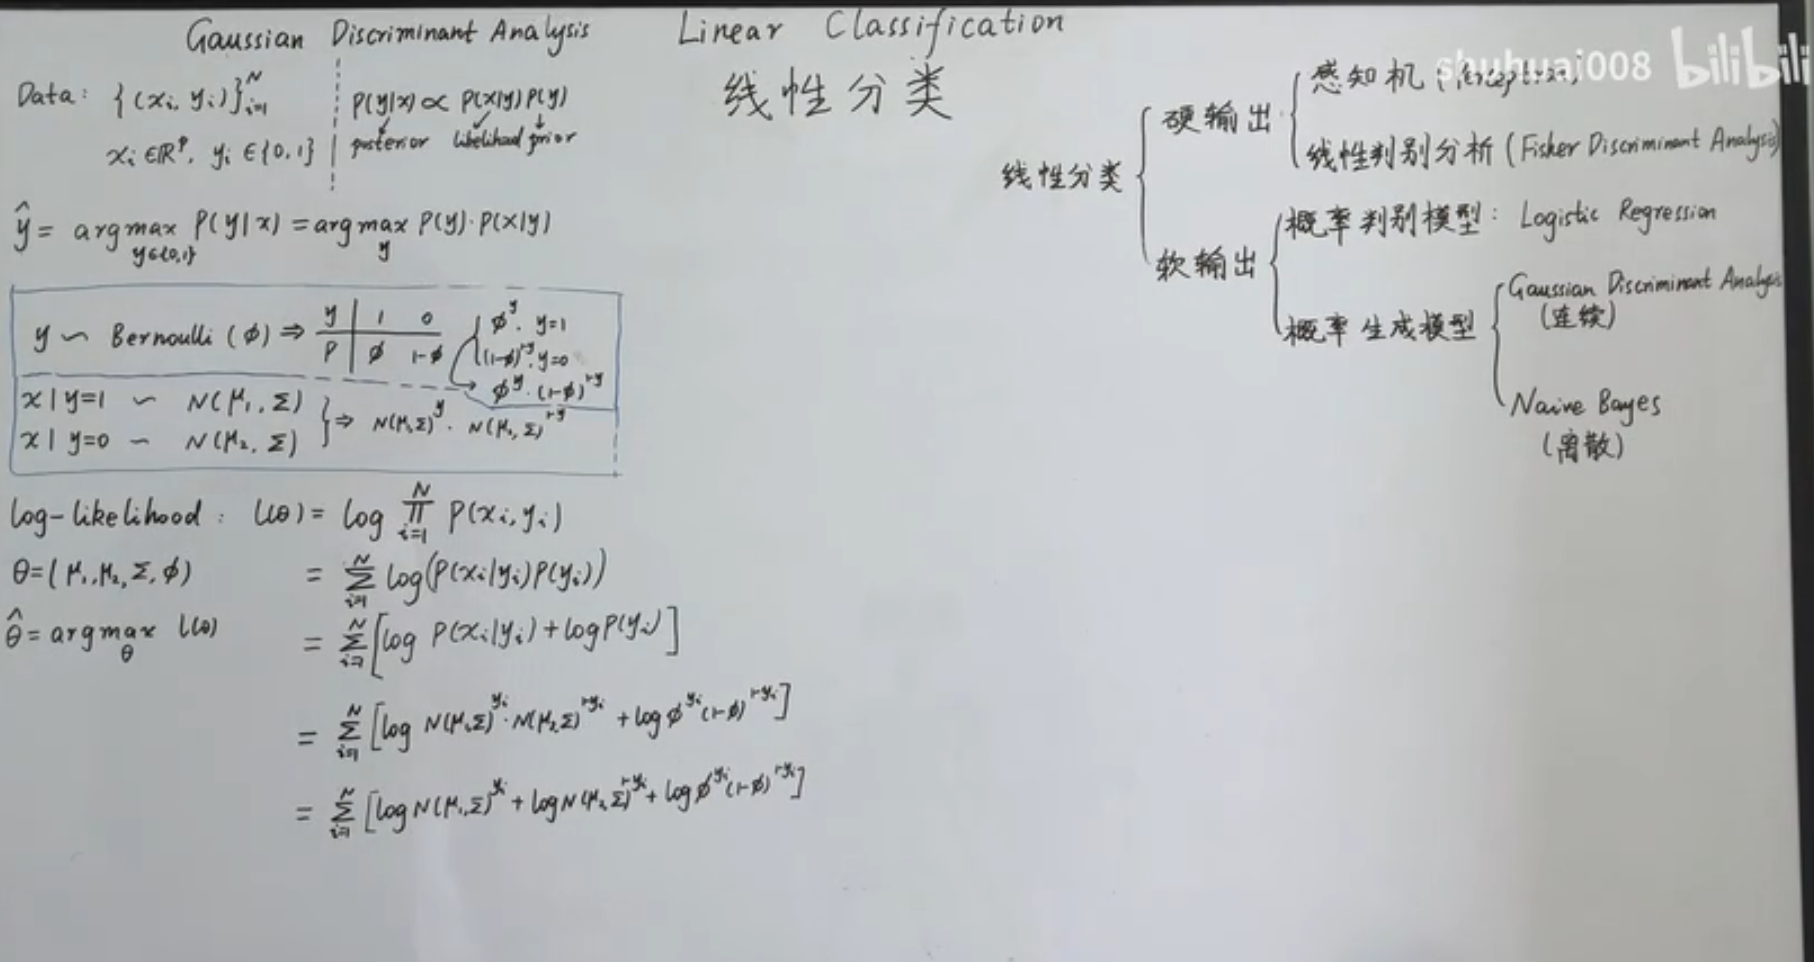 Gaussian Discriminant Analysis
Linear Classification
线性分类
Data: {(xᵢ, yᵢ)}ᵢ₌₁ᴺ
xᵢ ∈ ℝᵖ, yᵢ ∈ {0,1}
P(y|x) ∝ P(x|y) P(y)
posterior likelihood prior
ŷ = argmax_{y∈{0,1}} P(y|x) = argmax_y P(y)·P(x|y)
y ∽ Bernoulli (ϕ) ⇒
y | 1 0
P | ϕ 1-ϕ
{ ϕʸ, y=1
(1-ϕ)¹⁻ʸ, y=0
→ ϕʸ·(1-ϕ)¹⁻ʸ
x|y=1 ∽ N(μ₁, Σ)
x|y=0 ∽ N(μ₂, Σ)
} ⇒ N(μ₁,Σ)ʸ · N(μ₂,Σ)¹⁻ʸ
log-likelihood: l(θ) = log ∏ᵢ₌₁ᴺ P(xᵢ, yᵢ)
θ=(μ₁, μ₂, Σ, ϕ) = Σᵢ₌₁ᴺ log(P(xᵢ|yᵢ)P(yᵢ))
θ̂ = argmax_θ l(θ) = Σᵢ₌₁ᴺ [log P(xᵢ|yᵢ) + log P(yᵢ)]
= Σᵢ₌₁ᴺ [log N(μ₁,Σ)^{yᵢ}·N(μ₂,Σ)^{1-yᵢ} + log ϕ^{yᵢ}(1-ϕ)^{1-yᵢ}]
= Σᵢ₌₁ᴺ [log N(μ₁,Σ)^{yᵢ} + log N(μ₂,Σ)^{1-yᵢ} + log ϕ^{yᵢ}(1-ϕ)^{1-yᵢ}]
线性分类
硬输出
感知机:
线性判别分析 (Fisher Discriminant Analysis)
软输出
概率判别模型: Logistic Regression
概率生成模型
Gaussian Discriminant Analysis
(连续)
Naive Bayes
(离散)
shuhuai008 bilibili